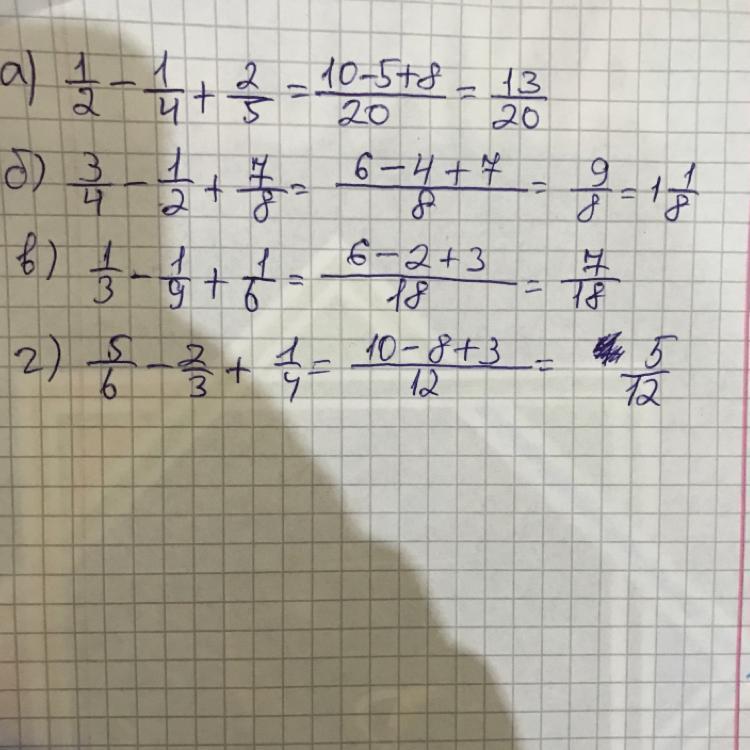 а) 1/2 - 1/4 + 2/5 = (10-5+8)/20 = 13/20
б) 3/4 - 1/2 + 7/8 = (6-4+7)/8 = 9/8 = 1 1/8
в) 1/3 - 1/9 + 1/6 = (6-2+3)/18 = 7/18
г) 5/6 - 2/3 + 1/4 = (10-8+3)/12 = 5/12